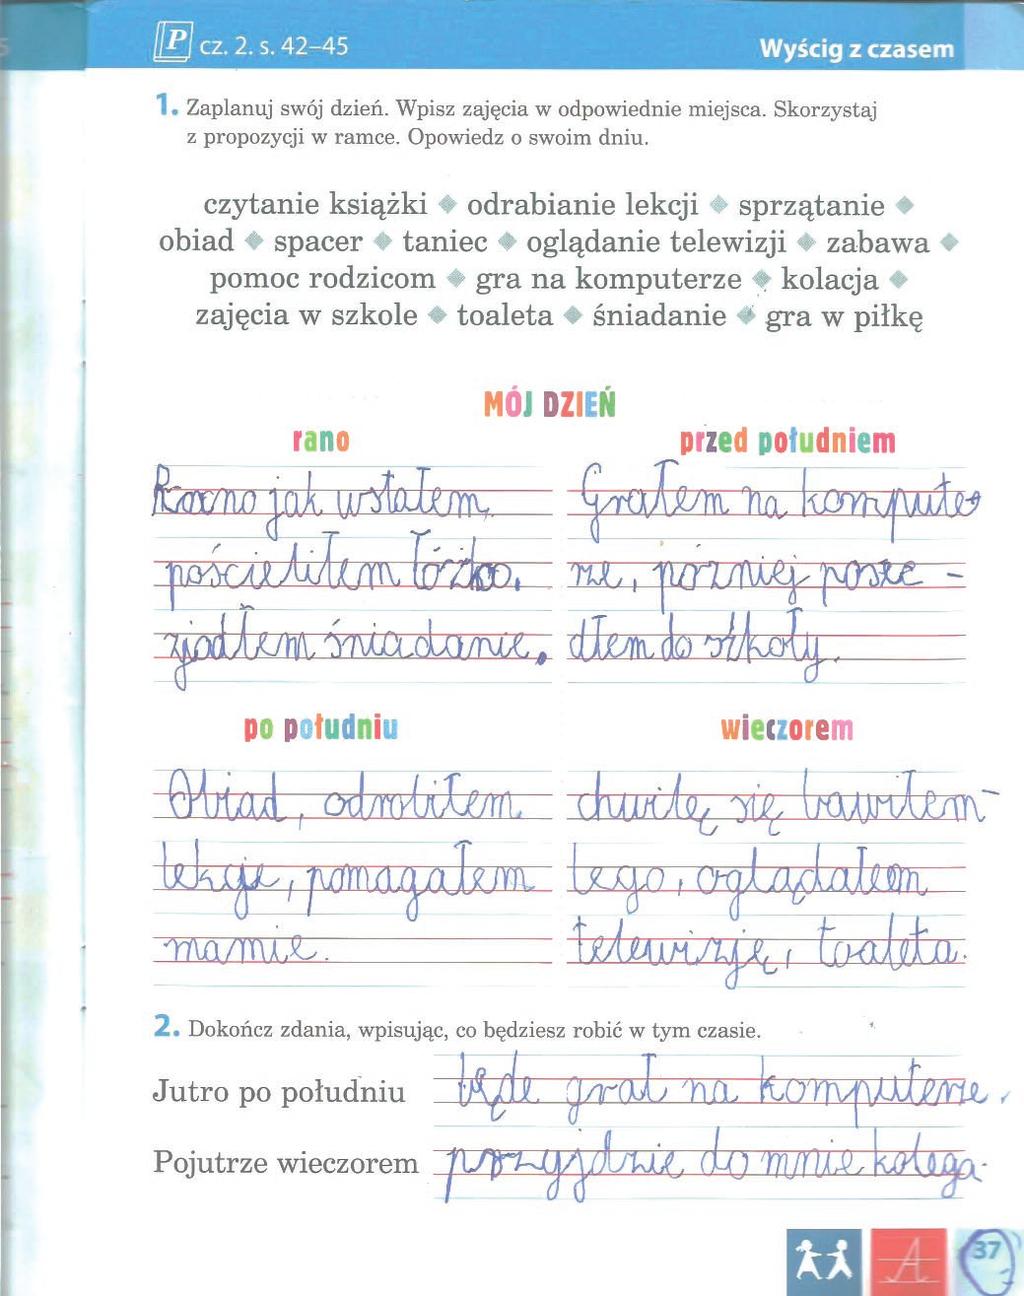 P cz. 2. s. 42–45
Wyścig z czasem
1. Zaplanuj swój dzień. Wpisz zajęcia w odpowiednie miejsca. Skorzystaj
z propozycji w ramce. Opowiedz o swoim dniu.
czytanie książki ◆ odrabianie lekcji ◆ sprzątanie ◆
obiad ◆ spacer ◆ taniec ◆ oglądanie telewizji ◆ zabawa ◆
pomoc rodzicom ◆ gra na komputerze ◆ kolacja ◆
zajęcia w szkole ◆ toaleta ◆ śniadanie ◆ gra w piłkę
MÓJ DZIEŃ
rano
Rano jak wstałem,
pościeliłem łóżko,
zjadłem śniadanie.
przed południem
Grałem na kompute
rze, pózniej posze-
dłem do szkoły.
po południu
Obiad, odrobiłem
lekcje, pomagałem
mamie.
wieczorem
chwilę się bawiłem-
tego, oglądałem
telewizję, toaleta.
2. Dokończ zdania, wpisując, co będziesz robić w tym czasie.
Jutro po południu będe grał na komputerze.
Pojutrze wieczorem przyjdzie do mnie kolega.
A
37